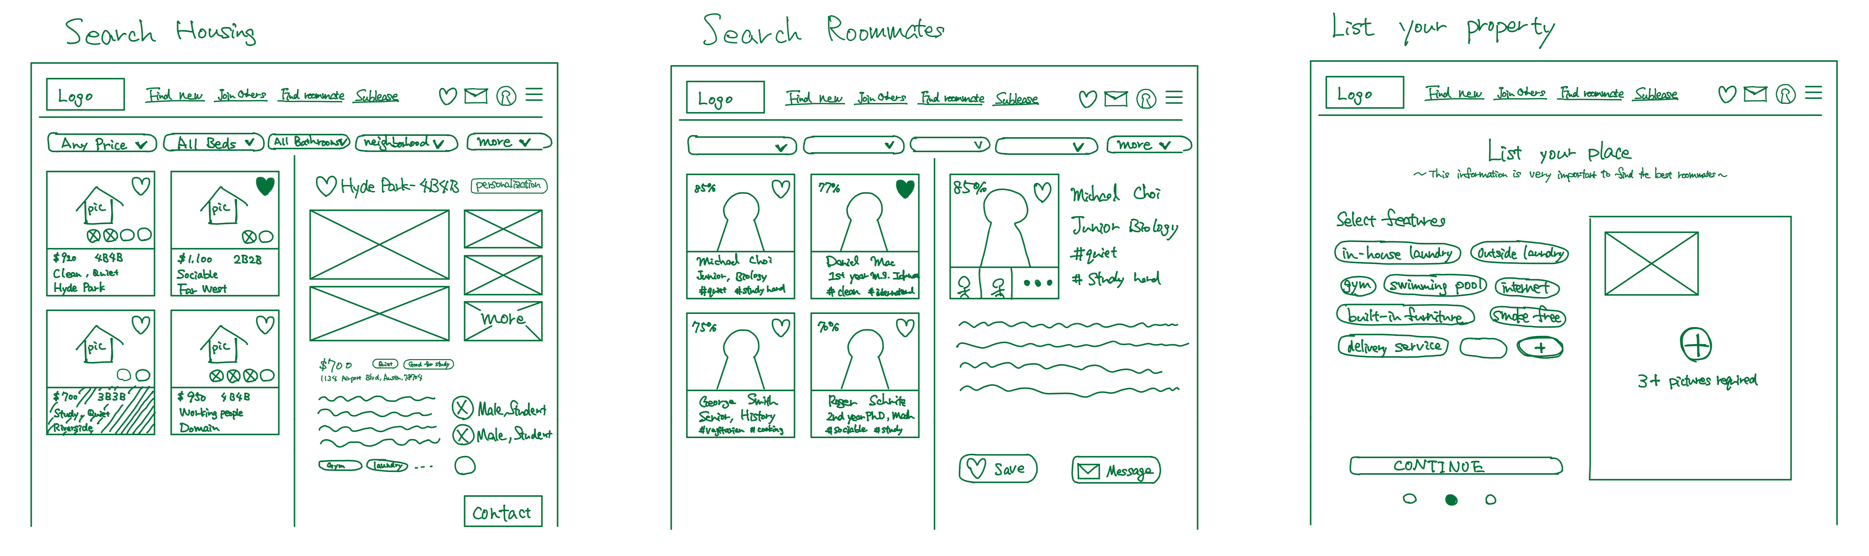 Search Housing
Logo
Find new Join Others Find roommate Sublease
R
Any Price All Beds All Bathrooms neighborhood more
pic
$920 4B4B
Clean, Quiet
Hyde Park
pic
$1,100 2B2B
Sociable
Far West
pic
$700 3B3B
Study, Quiet
Riverside
pic
$950 4B4B
Working people
Domain
Hyde Park - 4B4B personalization
more
$700 Quiet Good for study
Airport Blvd, Austin,
Male, Student
Male, Student
Gym laundry ...
Contact
Search Roommates
Logo
Find new Join Others Find roommate Sublease
R
more
85%
Michael Choi
Junior, Biology
#quiet #study hard
77%
Daniel Mac
1st year M.S.
#clean #international
75%
George Smith
Senior, History
#vegetarian #cooking
70%
Roger Schmitz
2nd year PhD, Math
#sociable #study
85%
Michael Choi
Junior Biology
#quiet
# Study hard
...
Save Message
List your property
Logo
Find new Join Others Find roommate Sublease
R
List your place
~ This information is very important to find the best roommates ~
Select features
in-house laundry Outside laundry
gym swimming pool internet
built-in furniture smoke free
delivery service +
CONTINUE
+
3+ pictures required